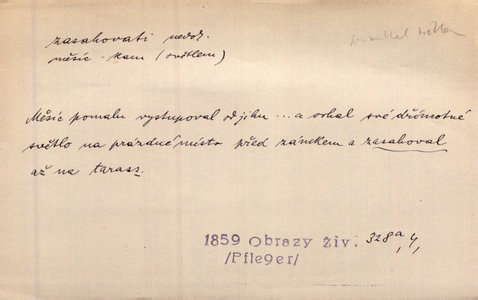 zasahovati nedok.
měsíc - kam (světlem)
Měsíc pomalu vystupoval od jihu ... a svhal své dřímotné
světlo na prázdné místo před zámkem a zasahoval
až na tarass.
1859 Obrazy živ. 328a, 4,
/Pfleger/